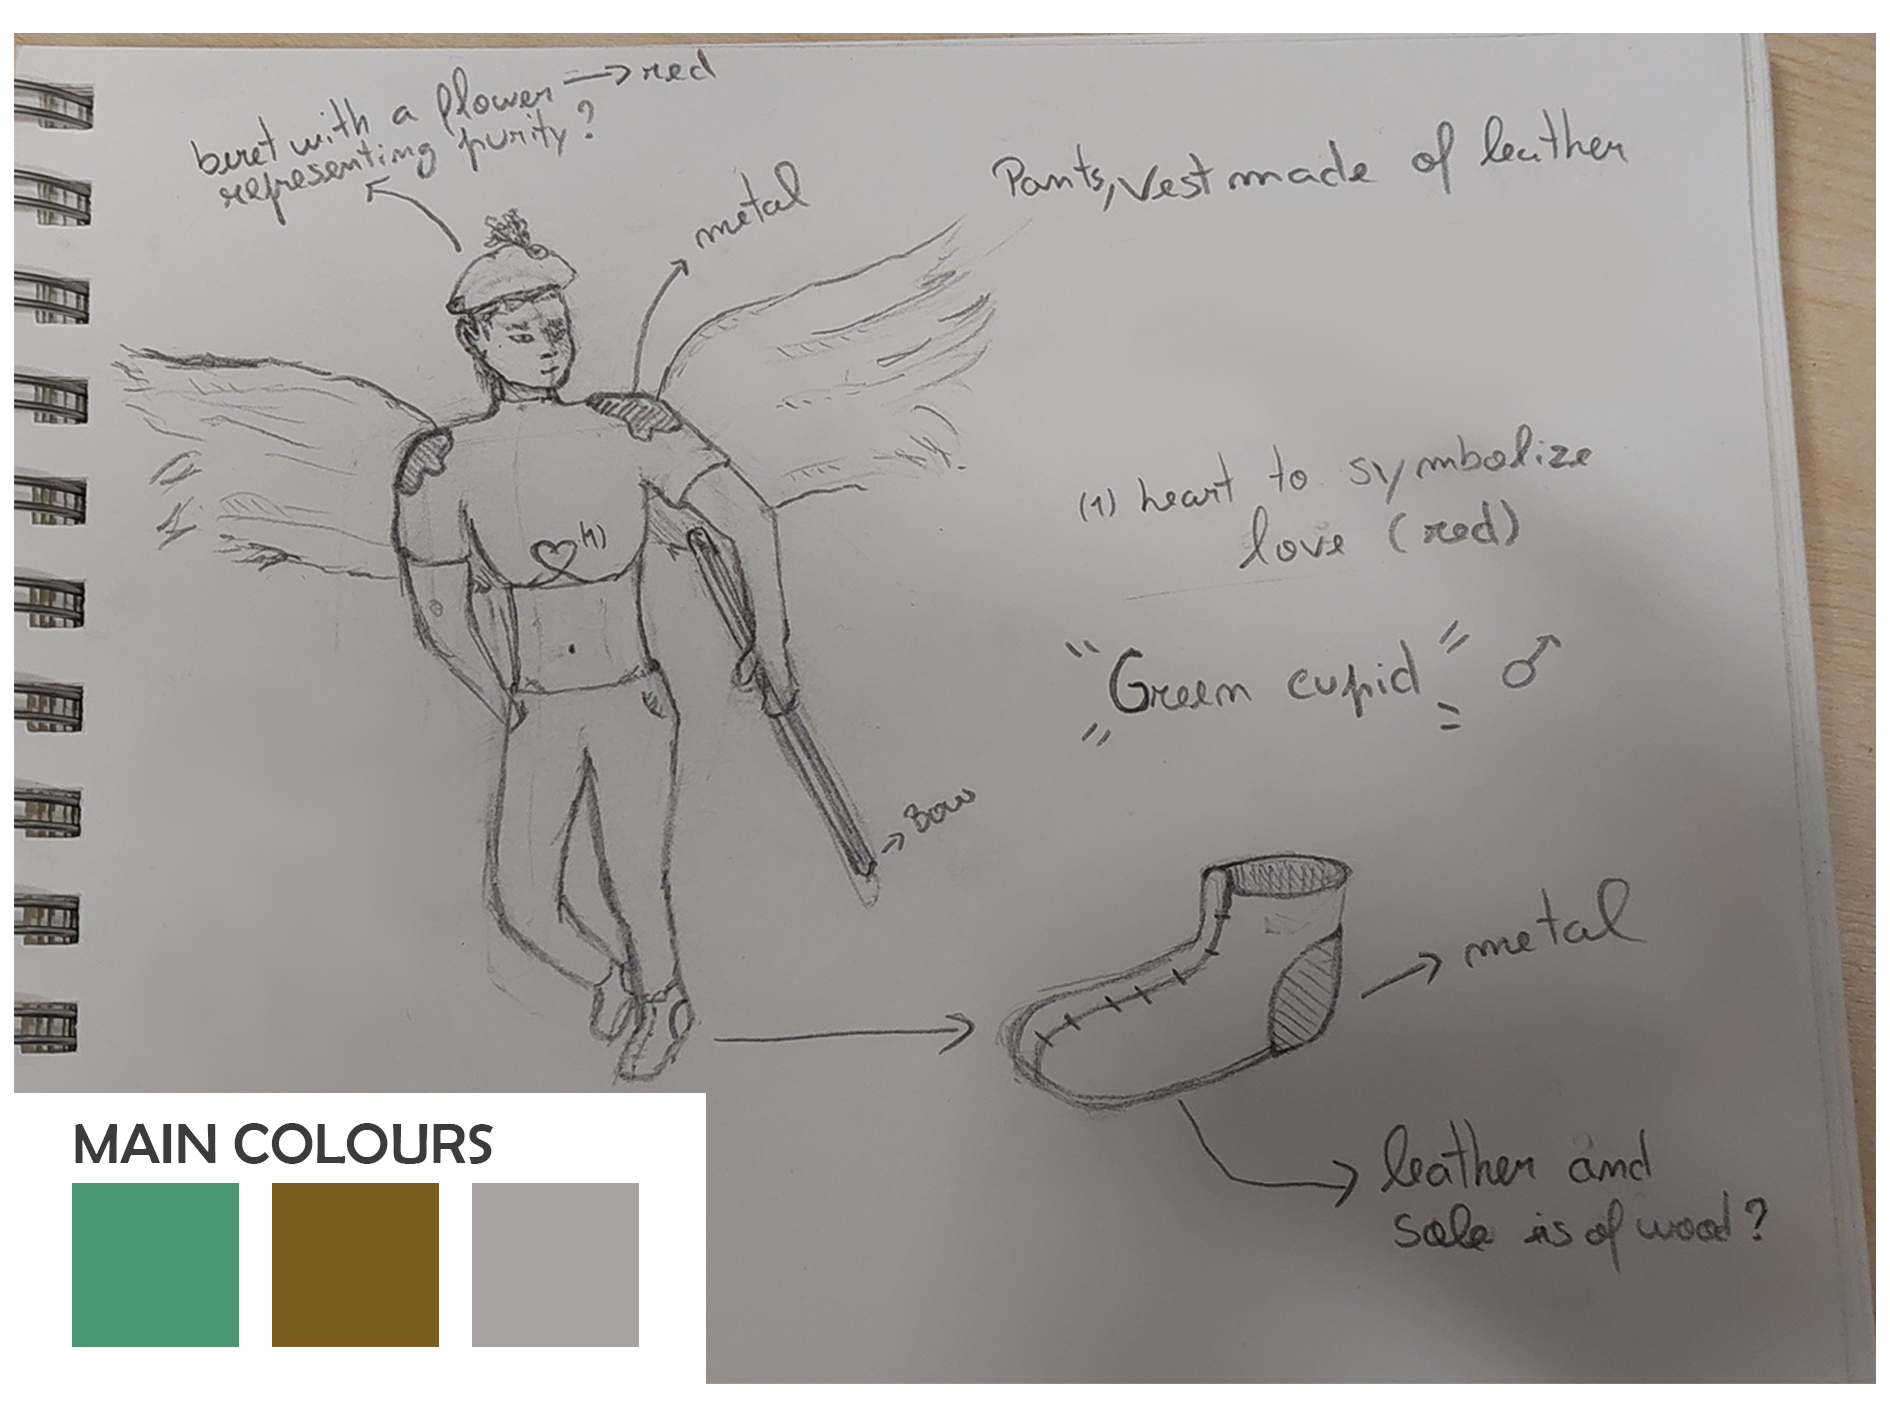 beret with a flower → red
representing purity?
metal
Pants, vest made of leather
(1)
(1) heart to symbolize
love (red)
"Green cupid" ♂
→ Bow
→ metal
leather and
sole is of wood?
MAIN COLOURS